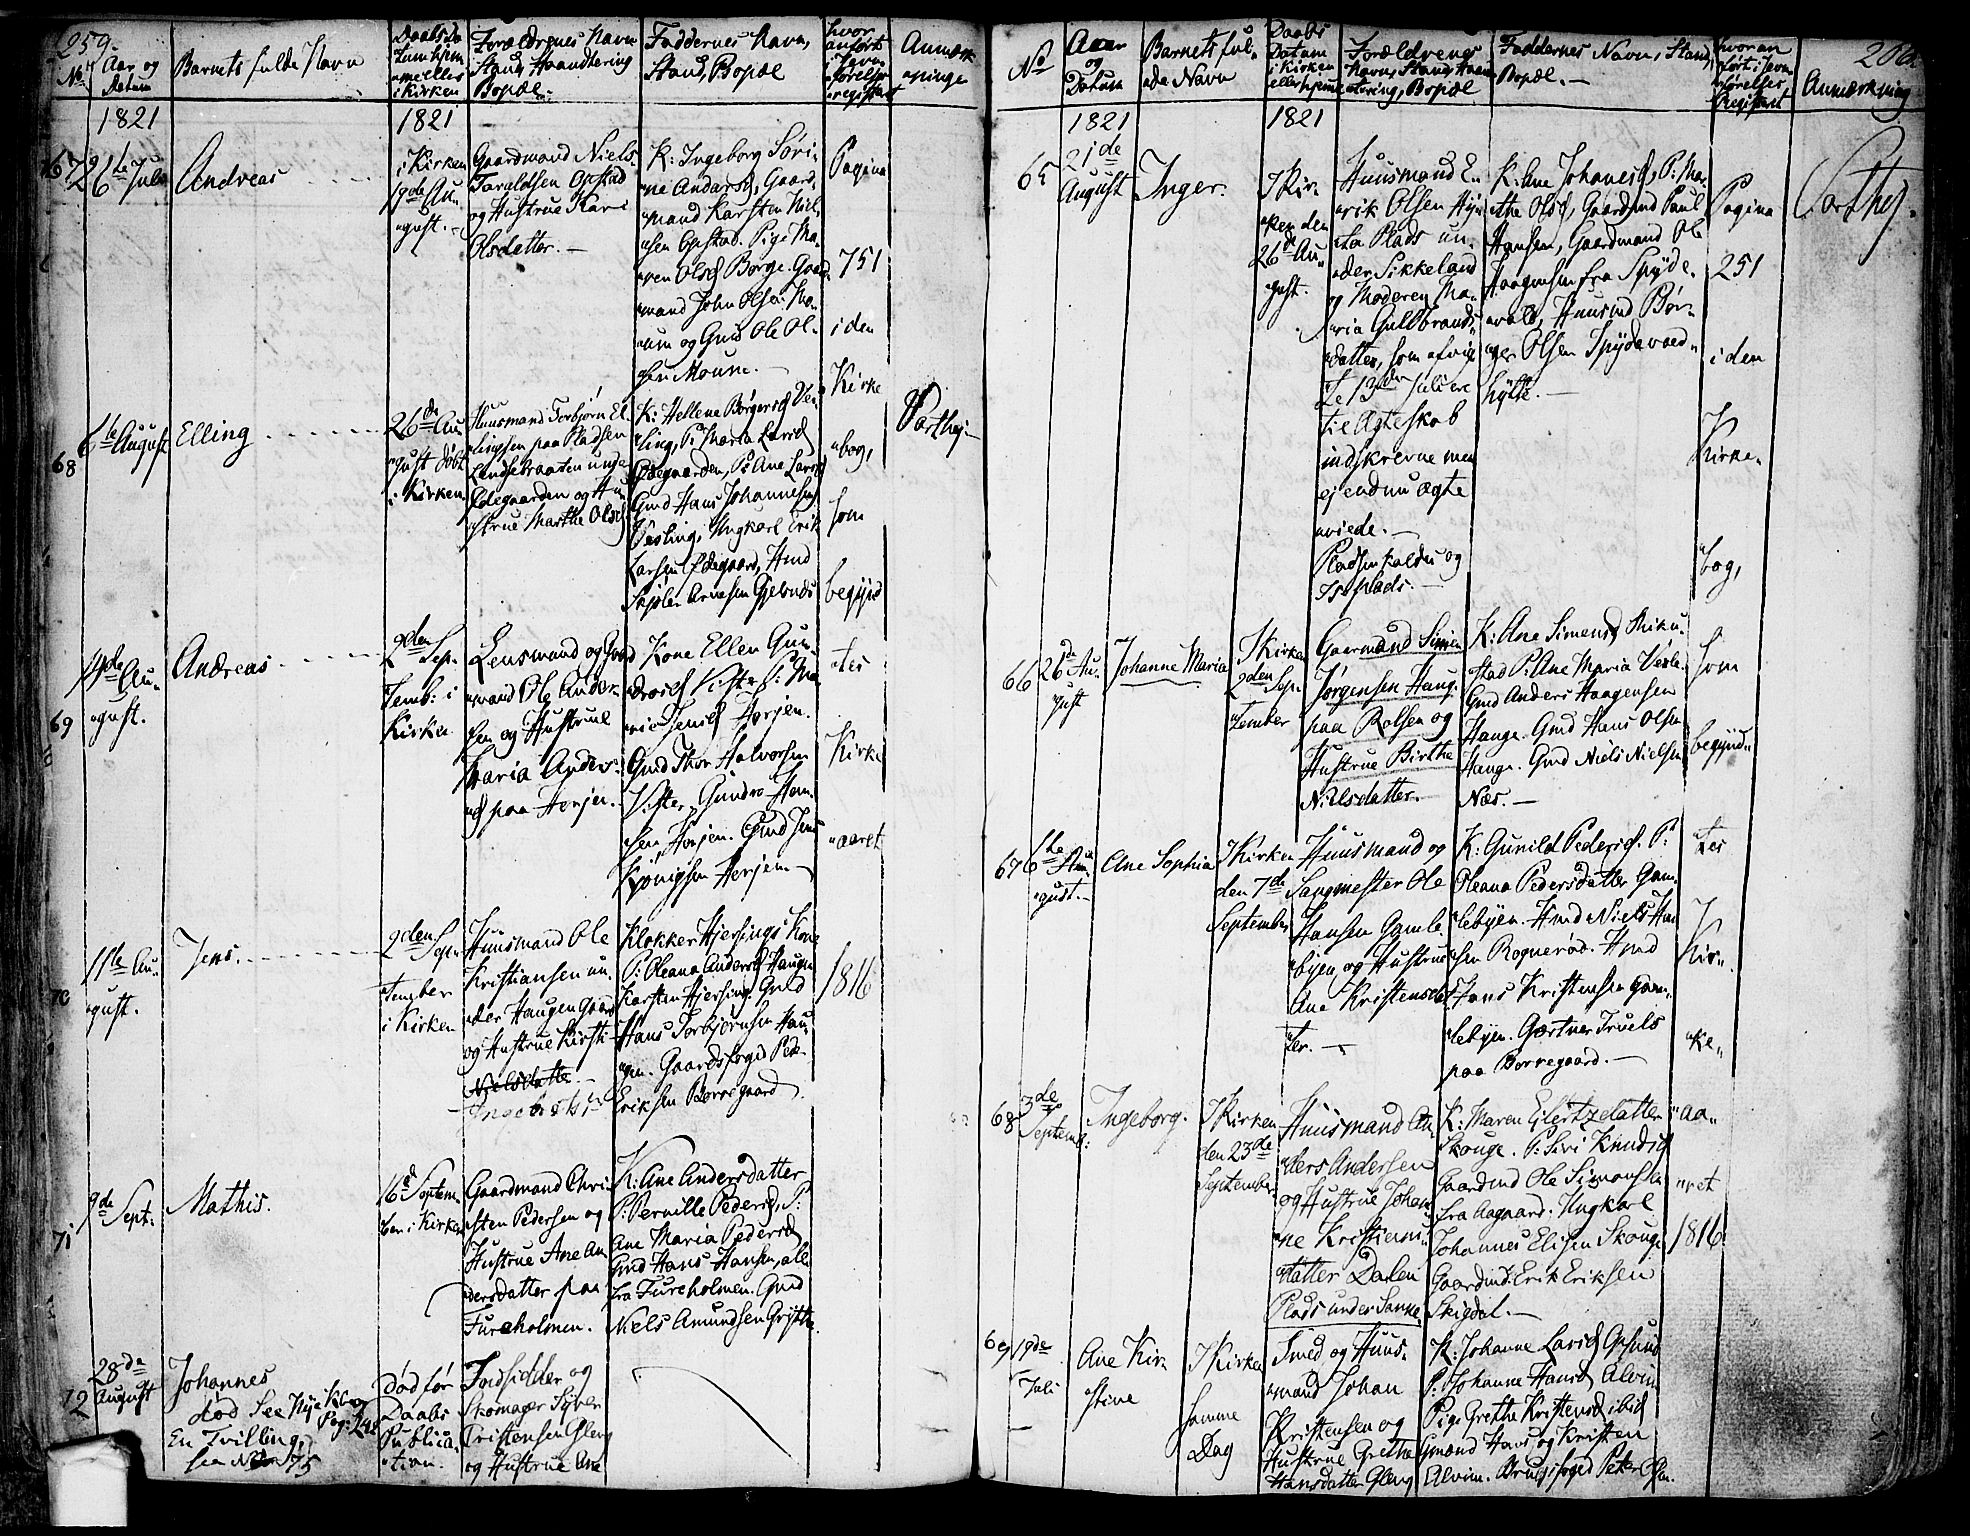 259.
No.
Aar og
Datum
Barnets fulde Navn
i Kirken
Forældrenes Navn
Stand, Haandtering
Bopæl.
Faddernes Navn,
Stand, Bopæl
hvor
anført
Anmærk
ninge
1821
1821
67
26de Juli
Andreas
i Kirken
19de Au
gust.
Gaardmand Niels
Taraldsen Opstad
og Hustrue Kari
Olsdatter.
K: Ingeborg Søri
ne Andersd, Gaard
mand Karsten Niel
sen Opstad. Pige Ma
ren Olsd Borge. Gaard
mand John Olsen
og Gmd Ole Ol
sen Moum.
Pagina
751
i den
Kirke
bog,
som
begynd
tes
Kirke
aaret
1816
68
6te August
Elling
26de Au
gust døbt
i Kirken
Huusmand Torbjørn El
lingsen paa Pladsen
under
Ødegaarden og Hu
strue Marthe Olsd
K: Hellene Børgersd Ves
ling, P: Maria Larsd
Ødegaarden, P: Ane Larsd
Gmd Hans Johannesen
Vesling, Ungkarl Erik
Larsen Ødegaard, Hmd
Arnesen
Parthej.
69
14de Au
gust.
Andreas
2den Sep
temb: i
Kirken
Lensmand og Gaard
mand Ole Ander
sen og Hustrue
Maria Anders
d paa Horjen.
Kone Ellen Gun
P: Ma
rie Jensd Horjen.
Gmd Thor Halvorsen
Vister, Gundro Han
sen Horjen. Gmd Jens
Kønigsen Horjen
70
11te Au
gust.
Jens.
2den Sep
tember
i Kirken
Huusmand Ole
Kristiansen un
der Haugen Gaard
og Hustrue Kirsti
Nielsdatter
Klokker Hjersings Kone
P: Oleana Andersd Haugen
Karsten Hjersing. Gmd
Hans Torbjørnsen Hau
gen. Gaardsfoged Peder
Eriksen Borregaard
71
9de Sept.
Mathis.
16d Septem
ber i Kirken
Gaardmand Chri
sten Pedersen og
Hustrue Ane An
dersdatter paa
Fureholmen.
K: Ane Andersdatter
P: Pernille Pedersd, P:
Ane Maria Pedersd
Gmd Hans Hansen, alle
fra Fureholmen. Gmd
Niels Amundsen
72
28de
August
Johannes
død See Nye Kbog
Pag: 248
En Tvilling,
see No 75
Død før
Daabs
Publica
tion.
Indsidder og
Skomager Syver
Kristensen Gleng
og Hustrue Ane
No
Aar
og
Datum
Barnets ful
de Navn
Daabs
Datum
i Kirken
eller hjemme
Forældrenes
Navn, Stand, Haand
tering, Bopæl
Faddernes Navn, Stand,
Bopæl.
hvor an
ført i Jevn
førelses
Registret
Anmærkning
260.
1821
1821
65
21de
August
Inger.
I Kir
ken den
26d Au
gust.
Huusmand E
rik Olsen
Plads un
der Sikkeland
og Moderen Ma
ria Gulbrands
datter, som
13de Juli ere
til Ægteskab
indskrevne men
ej endnu ægte
viede.
Pladsen kaldes og
K: Ane Johanesd, P: Ma
the Olsd, Gaardmd Paul
Hansen, Gaardmand Ole
Haagensen fra Spyde
vold, Huusmd Bør
ger Olsen Spydevold
hytte.
Pagina
251
i den
Kirke
bog,
som
begynd
tes
Kir
ke
aa
ret
1816
Parthej.
66
26de Au
gust
Johanne Maria
I Kirken
2den Sep
tember
Gaarmand Simen
Jørgensen Haug
paa Rolsøen og
Hustrue Birthe
Nielsdatter.
K: Ane Simensd
P: Ane Maria Vesle
Gmd Anders Haagensen
Hauge. Gmd Hans Olsen
Hauge. Gmd Niels Nielsen
Næs.
67
6te Au
gust.
Ane Sophia
I Kirken
den 7de
September
Huusmand og
Saugmester Ole
Hansen Gamle
byen, og Hustrue
Ane Kristensdat
ter.
K: Gunild Pedersd. P:
Oleana Pedersdatter Gam
lebyen. Hmd Niels Han
sen Rognerød. Hmd
Hans Kristensen Gam
lebyen. Gartner Truels
paa Borregaard.
68
3de
Septemb:
Ingeborg.
I Kirken
den 23de
September
Huusmand An
ders Andersen
og Hustrue Johan
ne Kristians
datter Dalen
Plads under Sanne
K: Maren Eilertzdatter
Skouge. P: Siri Knudsd
Gaardmd Ole Simonsen
fra Aagaard. Ungkarl
Johannes Elisen Skouge
Gaardmd: Erik Eriksen
Skigdal.
69
19de
Juli
Ane Kir
stine
I Kirken
samme
Dag
Smed og Huus
mand Johan
Kristensen og
Hustrue Grethe
Hansdatter Gleng
K: Johanne Larsd Opsund
P: Johanne Hansd Alvim
Pige Grethe Kristensd ibid
Gmand Hans og Kristen
Alvim. Brugsfoged Peter Olsen.